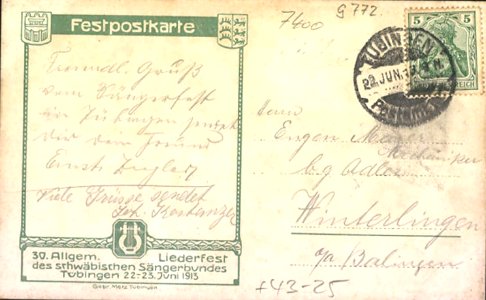 Festpostkarte
7400
G 772.
TÜBINGEN
22.JUN.13
5
5
Freundl. Gruß
vom Sängerfest
in Tübingen sendet
Dir dein Freund
Ernst
Viele Grüsse sendet
Joh. Konstanzer
Herrn
Eugen
Mechaniker
b/g Adler
Winterlingen
o/a Balingen
39. Allgem. Liederfest
des schwäbischen Sängerbundes
Tübingen 22-23. Juni 1913
Gebr. Metz Tübingen
+43-25